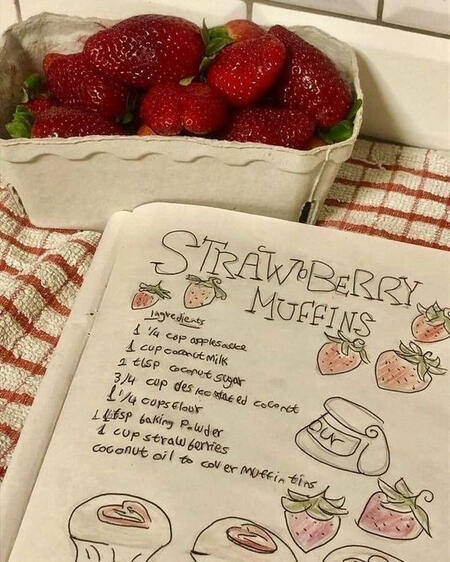 STRAWBERRY
MUFFINS
Ingredients
1 1/4 cup applesauce
1 cup coconut milk
2 tbsp coconut sugar
3/4 cup desiccated coconut
1 1/4 cups flour
1 tbsp baking powder
1 cup strawberries
coconut oil to cover muffin tins